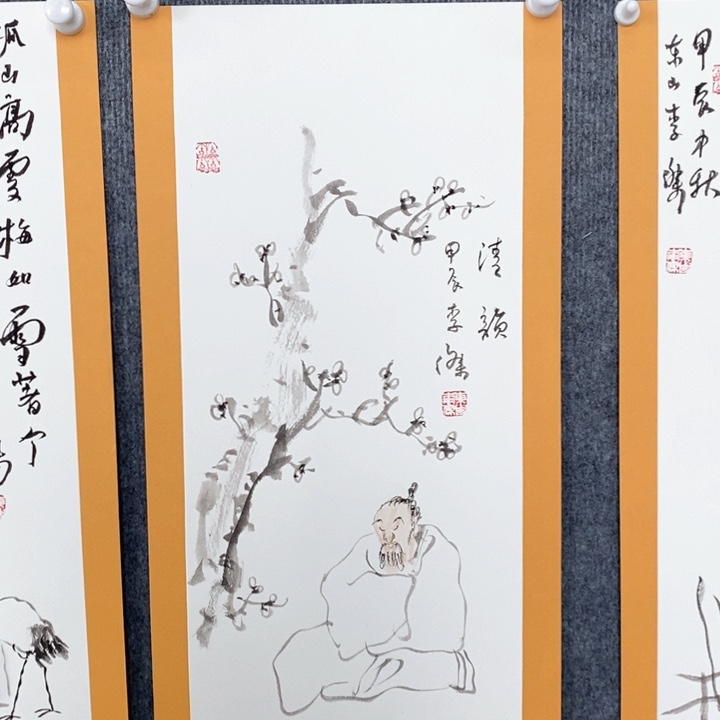 孤山高
雪梅如
雪著个
清韻
甲辰李傑
甲辰中秋
东山李傑